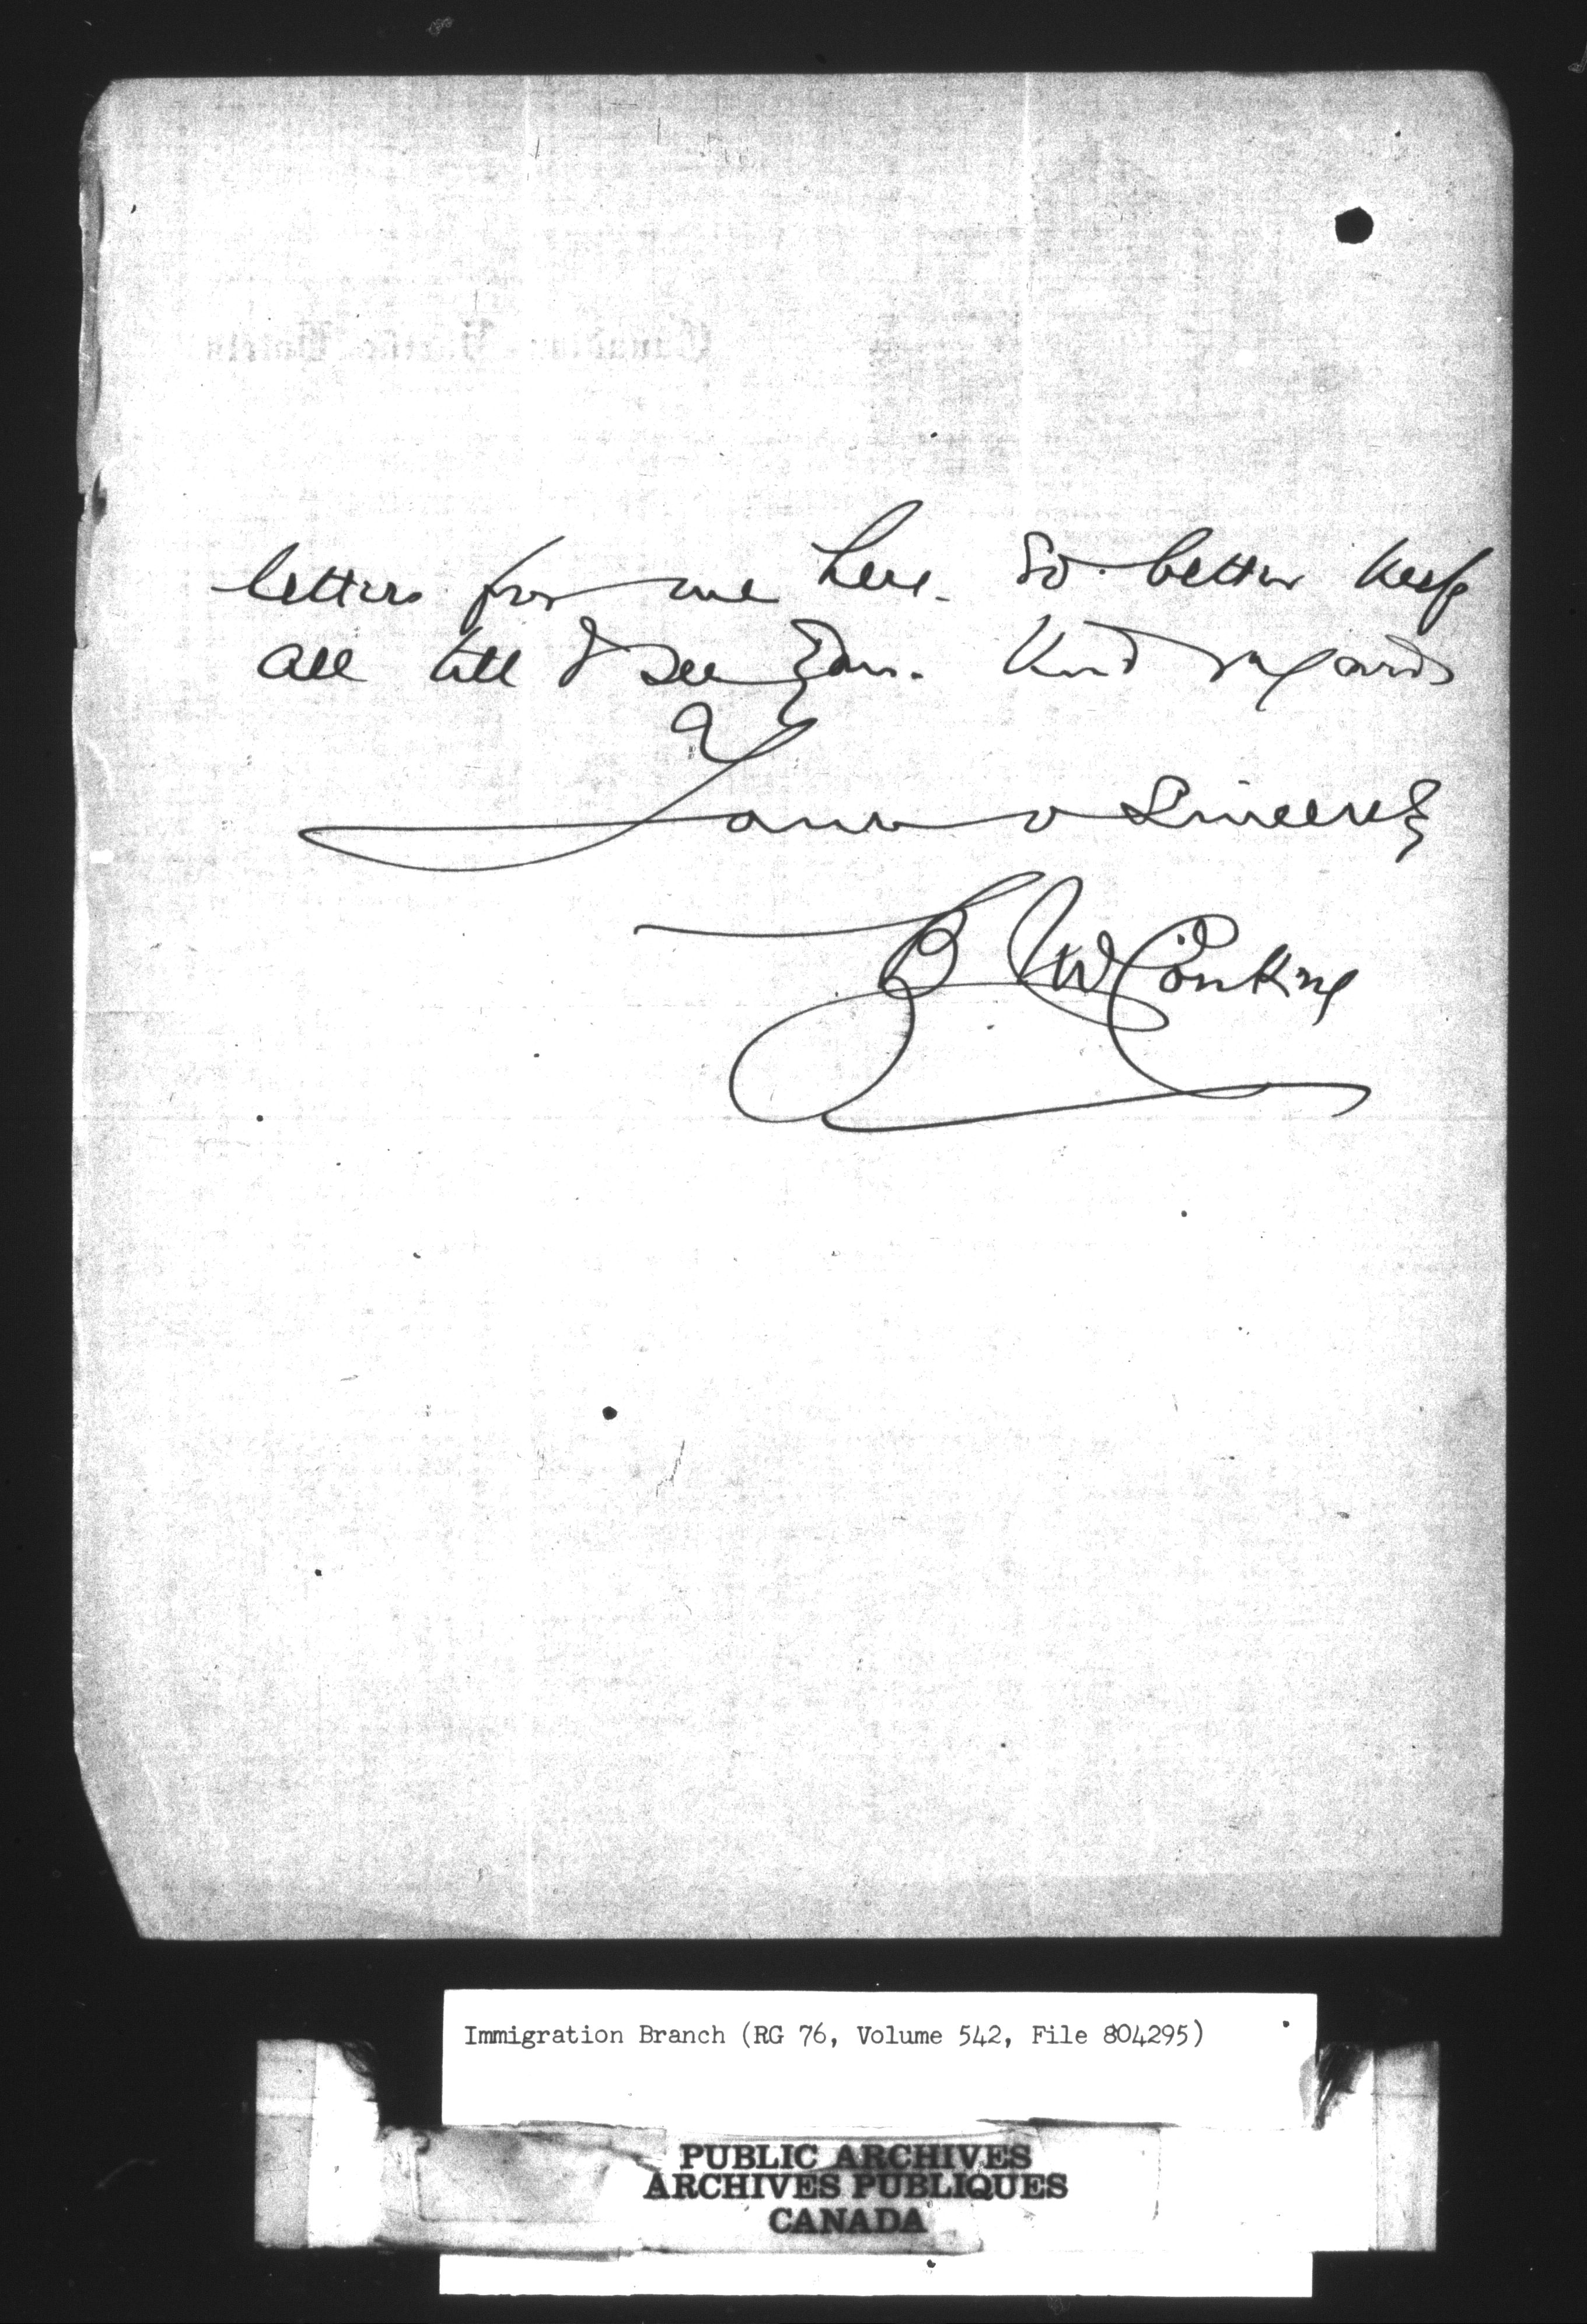 letters for me here. So better keep
all till I see you. Kind regards
Yours Sincerely
B W Conking
Immigration Branch (RG 76, Volume 542, File 804295)
PUBLIC ARCHIVES
ARCHIVES PUBLIQUES
CANADA